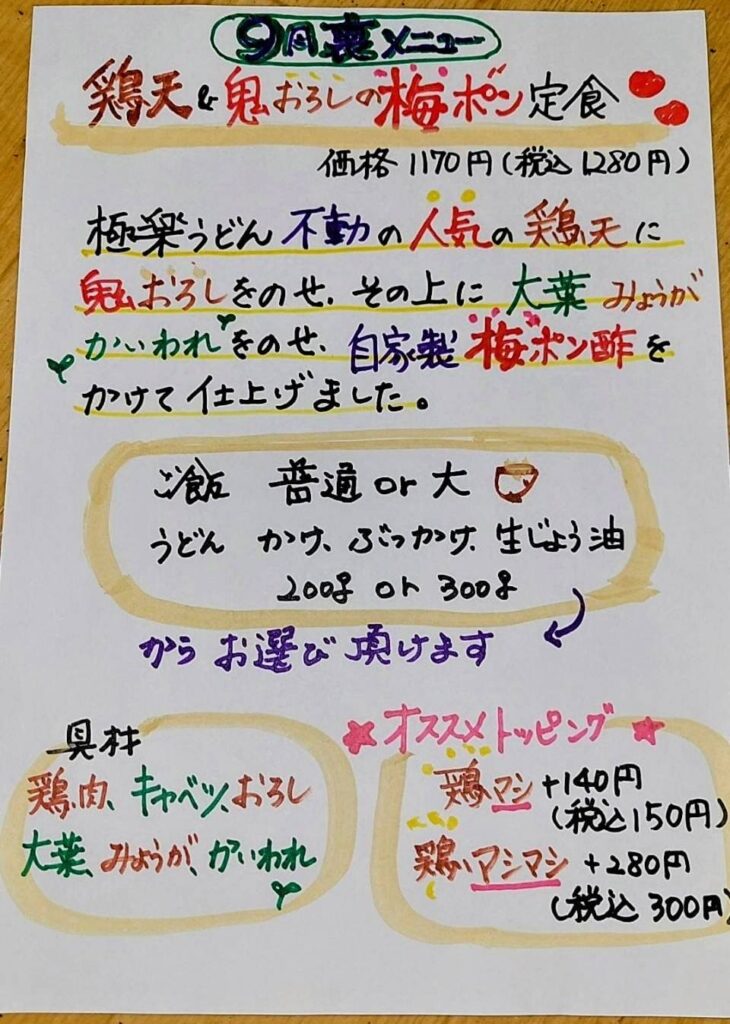 9月裏メニュー
鶏天&鬼おろしの梅ポン定食
価格1170円(税込1280円)
極楽うどん不動の人気の鶏天に
鬼おろしをのせ、その上に大葉みょうが
かいわれをのせ、自家製梅ポン酢を
かけて仕上げました。
ご飯 普通or大
うどん かけ、ぶっかけ、生じょう油
200g or 300g
からお選び頂けます
具材
鶏肉、キャベツ、おろし
大葉、みょうが、かいわれ
オススメトッピング
鶏マシ+140円
(税込150円)
鶏マシマシ+280円
(税込300円)